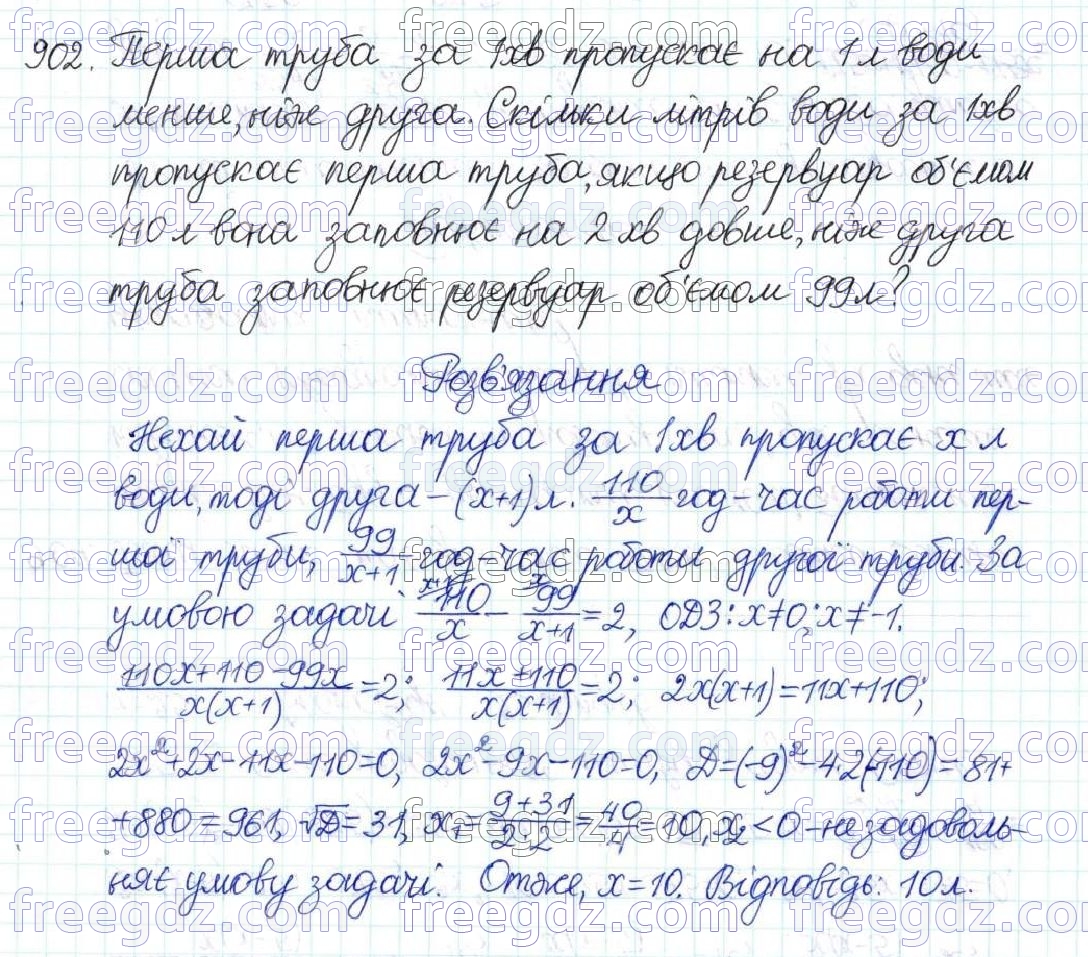 902. Перша труба за 1хв пропускає на 1 л води
менше, ніж друга. Скільки літрів води за 1хв
пропускає перша труба, якщо резервуар об'ємом
110 л вона заповнює на 2 хв довше, ніж друга
труба заповнює резервуар об'ємом 99 л?
Розв'язання
Нехай перша труба за 1хв пропускає x л
води, тоді друга – (x+1) л. 110/x год – час роботи пер-
шої труби, 99/(x+1) год – час роботи другої труби. За
умовою задачі 110/x - 99/(x+1) = 2, ОДЗ: x≠0; x≠-1.
(110x+110-99x)/(x(x+1)) = 2; (11x+110)/(x(x+1)) = 2; 2x(x+1)=11x+110;
2x²+2x-11x-110=0, 2x²-9x-110=0, D=(-9)²-4·2(-110)=81+
+880=961, √D=31, x₁=(9+31)/(2·2)=40/4=10, x₂<0 – не задоволь-
няє умову задачі. Отже, x=10. Відповідь: 10 л.